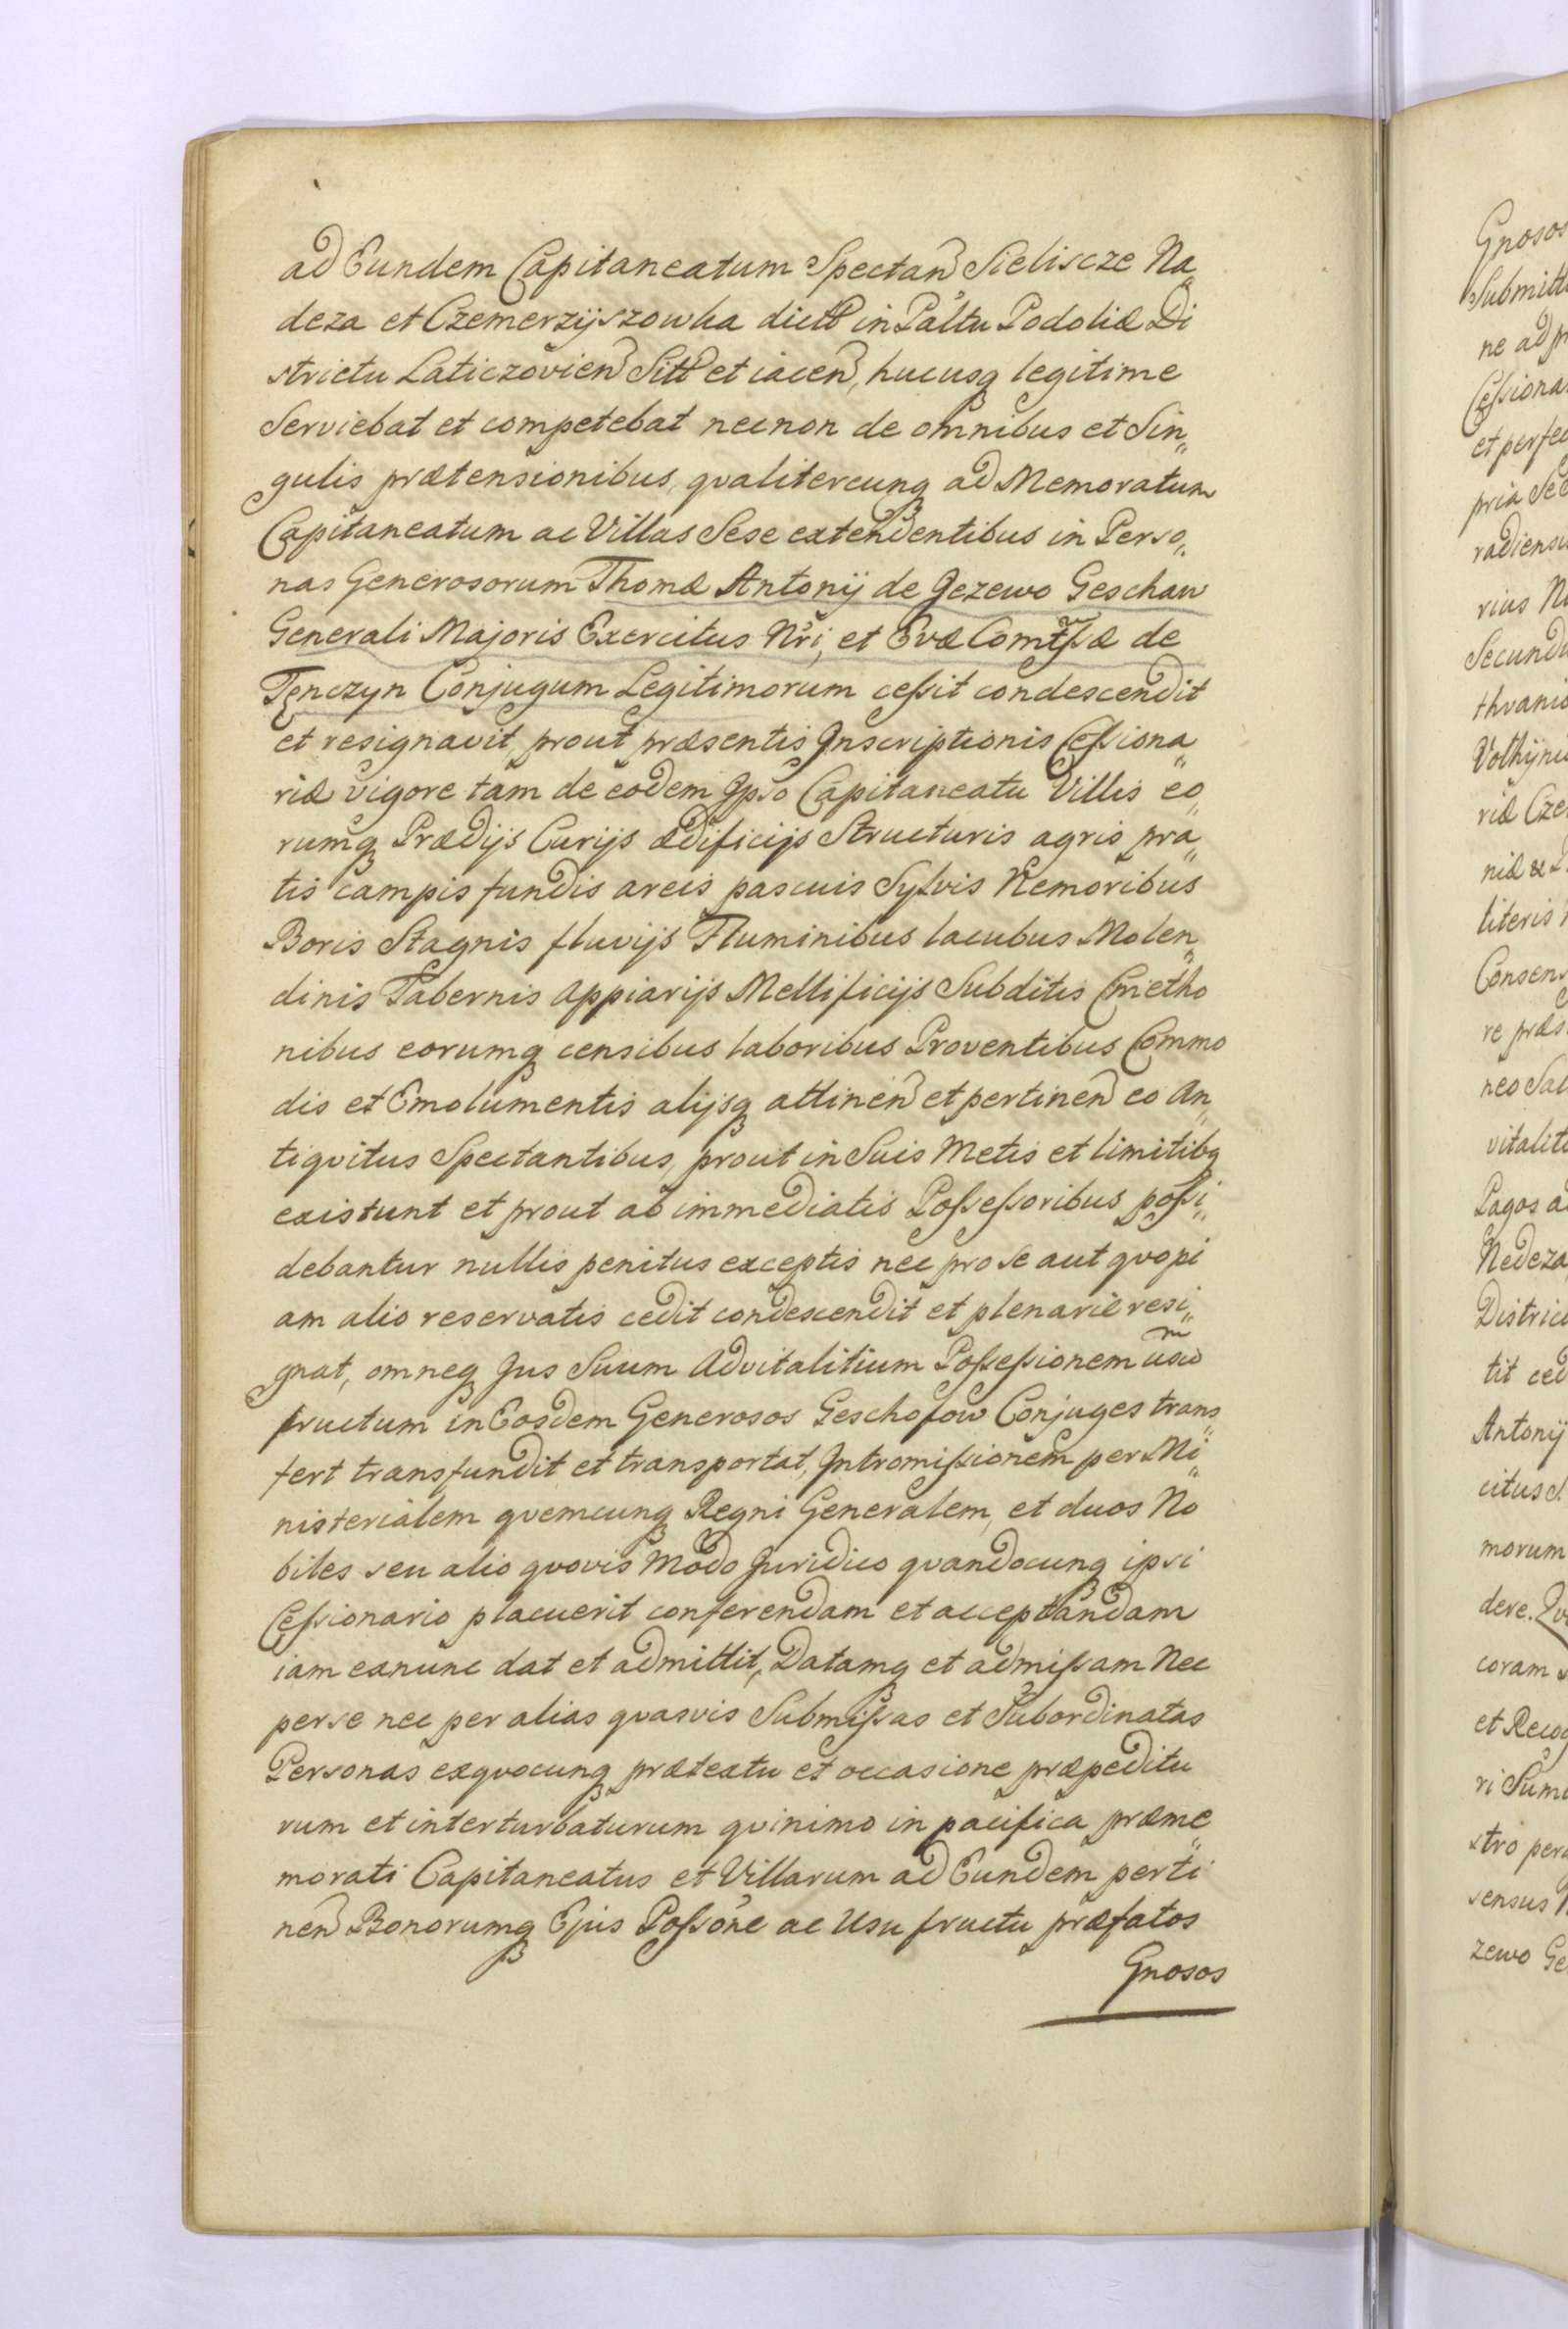 ad Eundem Capitaneatum Spectan Sieliscze Na„
deza et Czemerzyszowka dict in Paltu Podoliæ Di
strictu Laticzovien Sitt et iacen, hucusq legitime
Serviebat et competebat necnon de omnibus et Sin„
gulis prætensionibus, qvalitercunq ad Memoratum
Capitaneatum ac Villas Sese extendentibus in Perso„
nas Generosorum Thomæ Antonij de Gezewo Geschaw
Generali Majoris Exercitus Nri, et Evæ Comtissæ de
Tęnczyn Conjugum Legitimorum cessit condescendit
et resignavit, prout præsentis Inscriptionis Cessiona„
riæ vigore tam de eodem Ipso Capitaneatu Villis eo„
rumq Prædijs Curijs ædificijs Structuris agris pra„
tis campis fundis areis pascuis Sylvis Nemoribus
Boris Stagnis fluvijs Fluminibus lacubus Molen„
dinis Tabernis Appiarijs Mellificijs Subditis Cmetho
nibus eorumq censibus laboribus Proventibus Commo
dis et Emolumentis alijsq attinen et pertinen eo An„
tiqvitus Spectantibus, prout in Suis Metis et limitibq
existunt et prout ab immediatis Possessoribus possi„
debantur nullis penitus exceptis nec pro se aut qvopi
am alio reservatis cedit condescendit et plenarie resi„
gnat, omneq Jus Suum Advitalitium Possessionem usu
fructum in Eosdem Generosos Geschofow Conjuges trans„
fert transfundit et transportat, Intromissionem per Mi„
nisterialem qvemcunq Regni Generalem, et duos No
biles seu alio qvovis Modo Juridico qvandocunq ipsi
Cessionario placuerit conferendam et acceptandam
iam exnunc dat et admittit, Datamq et admissam Nec
per se nec per alias qvasvis Submissas et Subordinatas
Personas exqvocunq prætextu et occasione præpeditu
rum et interturbaturum qvinimo in pacifica præme„
morati Capitaneatus et Villarum ad Eundem perti
nen Bonorumq Ejus Possone ac Usu fructu præfatos
Gnosos
Gnosos
Submitt
ne ad
Cessiona
et perfec
pria
radiensi
rius
Secund
thvanis
Volhyni
riæ Cze
niæ &
literis
Consens
re præs
neo Sal
vitalit
Pagos a
Nedeza
Distric
tit ced
Antonij
citus
morum
dere.
coram
et Recog
ri Sum
stro per
sensus
zewo Ge